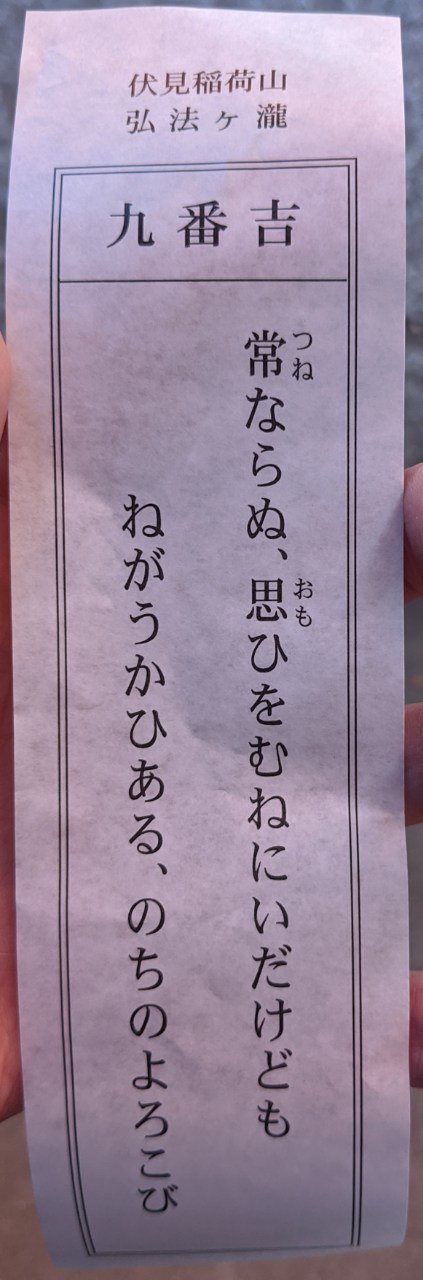 伏見稲荷山
弘法ヶ瀧
九番吉
常ならぬ、思ひをむねにいだけども
つね
おも
ねがうかひある、のちのよろこび